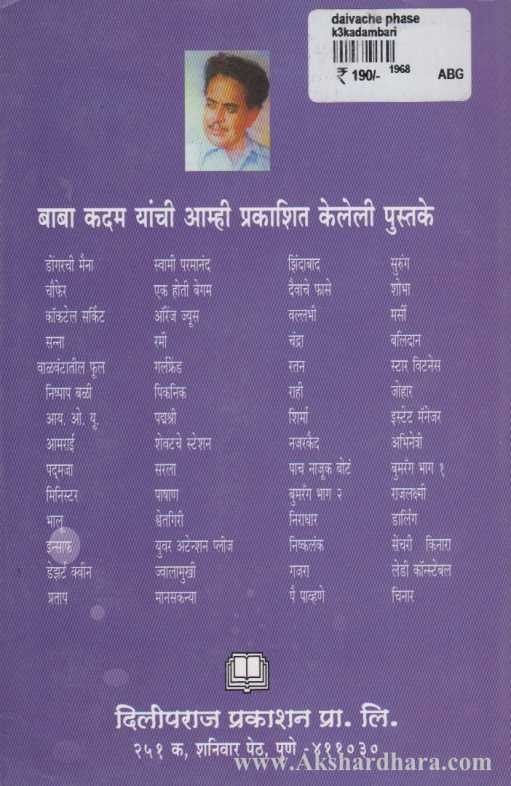 daivache phase
k3kadambari
₹ 190/- 1968 ABG
बाबा कदम यांची आम्ही प्रकाशित केलेली पुस्तके
डोंगरची मैना स्वामी परमानंद झिंदाबाद सुरुंग
चौफेर एक होती बेगम दैवाचे फासे शोभा
कॉकटेल सर्किट ऑरेंज ज्यूस वल्लभी मर्सी
सन्ना रमी चंद्रा बलिदान
वाळवंटातील फूल गर्लफ्रेंड रतन स्टार विटनेस
निष्पाप बळी पिकनिक राही जोहार
आय. ओ. यू. पद्मश्री शिर्मा इस्टेट मॅनेजर
आमराई शेवटचे स्टेशन नजरकैद अभिनेत्री
पद्मजा सरला पाच नाजूक बोटं बुमरँग भाग १
मिनिस्टर पाषाण बुमरँग भाग २ राजलक्ष्मी
भालू श्वेतगिरी निराधार डार्लिंग
इन्साफ युवर अटेन्शन प्लीज निष्कलंक सेंचरी किनारा
डेझर्ट क्वीन ज्वालामुखी गजरा लेडी कॉन्स्टेबल
प्रताप मानसकन्या पै पाव्हणे चिनार
दिलीपराज प्रकाशन प्रा. लि.
२५१ क, शनिवार पेठ, पुणे -४११०३०
www.Akshardhara.com